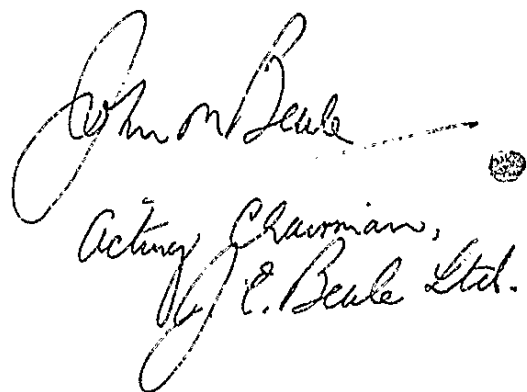 John M Beale
Acting Chairman,
J E. Beale Ltd.